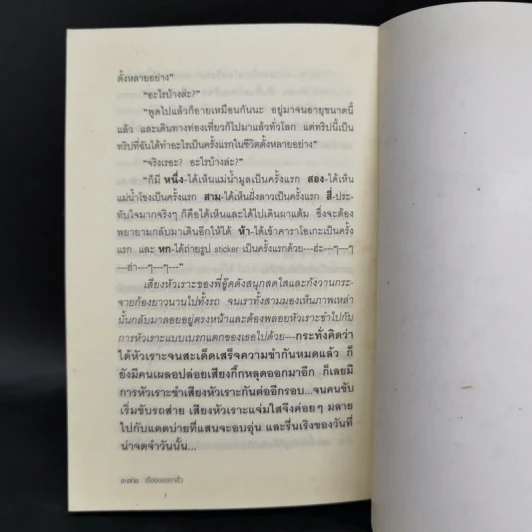 ตั้งหลายอย่าง”
“อะไรบ้างล่ะ?”
“พูดไปแล้วก็อายเหมือนกันนะ อยู่มาจนอายุขนาดนี้
แล้ว และเดินทางท่องเที่ยวก็ไปมาแล้วทั่วโลก แต่ทริปนี้เป็น
ทริปที่ฉันได้ทำอะไรเป็นครั้งแรกในชีวิตตั้งหลายอย่าง”
“จริงเรอะ? อะไรบ้างล่ะ?”
“ก็มี หนึ่ง-ได้เห็นแม่น้ำมูลเป็นครั้งแรก สอง-ได้เห็น
แม่น้ำโขงเป็นครั้งแรก สาม-ได้เห็นฝั่งลาวเป็นครั้งแรก สี่-ประ-
ทับใจมากจริงๆ ก็คือได้เห็นและได้ไปเดินผาแต้ม ซึ่งจะต้อง
พยายามกลับมาเดินอีกให้ได้ ห้า-ได้เข้าคาราโอเกะเป็นครั้ง
แรก และ หก-ได้ถ่ายรูป sticker เป็นครั้งแรกด้วย---ฮ่ะ---ๆ---ๆ
---ฮ่า---ๆ---ๆ---”
เสียงหัวเราะของพี่อู๊ดดังสนุกสดใสและกังวานกระ-
จายก้องยาวนานไปทั้งรถ จนเราทั้งสามมองเห็นภาพเหล่า
นั้นกลับมาลอยอยู่ตรงหน้าและต้องพลอยหัวเราะขำไปกับ
การหัวเราะแบบเบรกแตกของเธอไปด้วย---กระทั่งคิดว่า
ได้หัวเราะจนสะเด็ดเสร็จความขำกันหมดแล้ว ก็
ยังมีคนเผลอปล่อยเสียงกิ๊กหลุดออกมาอีก ก็เลยมี
การหัวเราะขำเสียงหัวเราะกันต่ออีกรอบ...จนคนขับ
เริ่มขับรถส่าย เสียงหัวเราะแจ่มใสจึงค่อยๆ มลาย
ไปกับแดดบ่ายที่แสนจะอบอุ่น และรื่นเริงของวันที่
น่าจดจำวันนั้น...